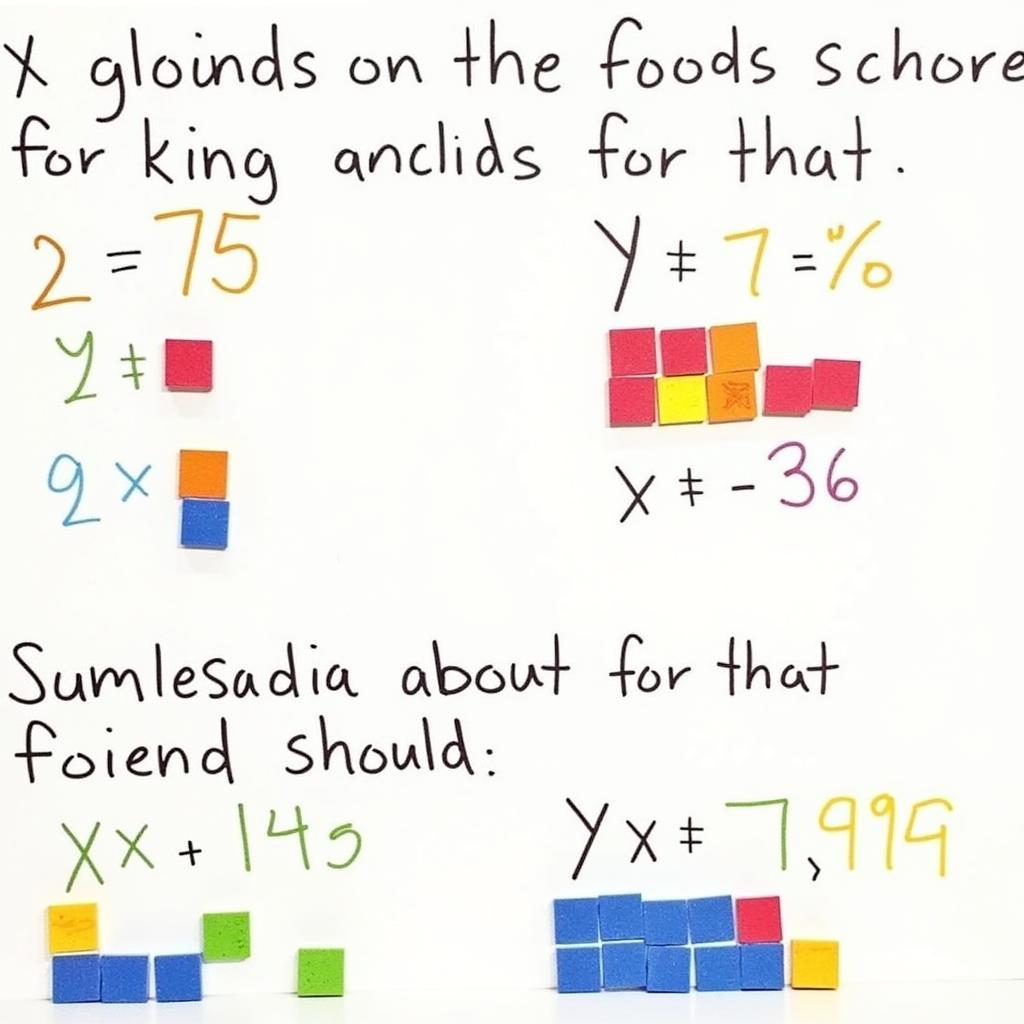 X gloinds on the foods schore
for king anclids for that.
2 = 75
y ‡ 7 = %
y ‡
2 x
x ‡ - 36
Sumlesadia about for that
foiend should:
Xx + 145
yx ‡ 7,999